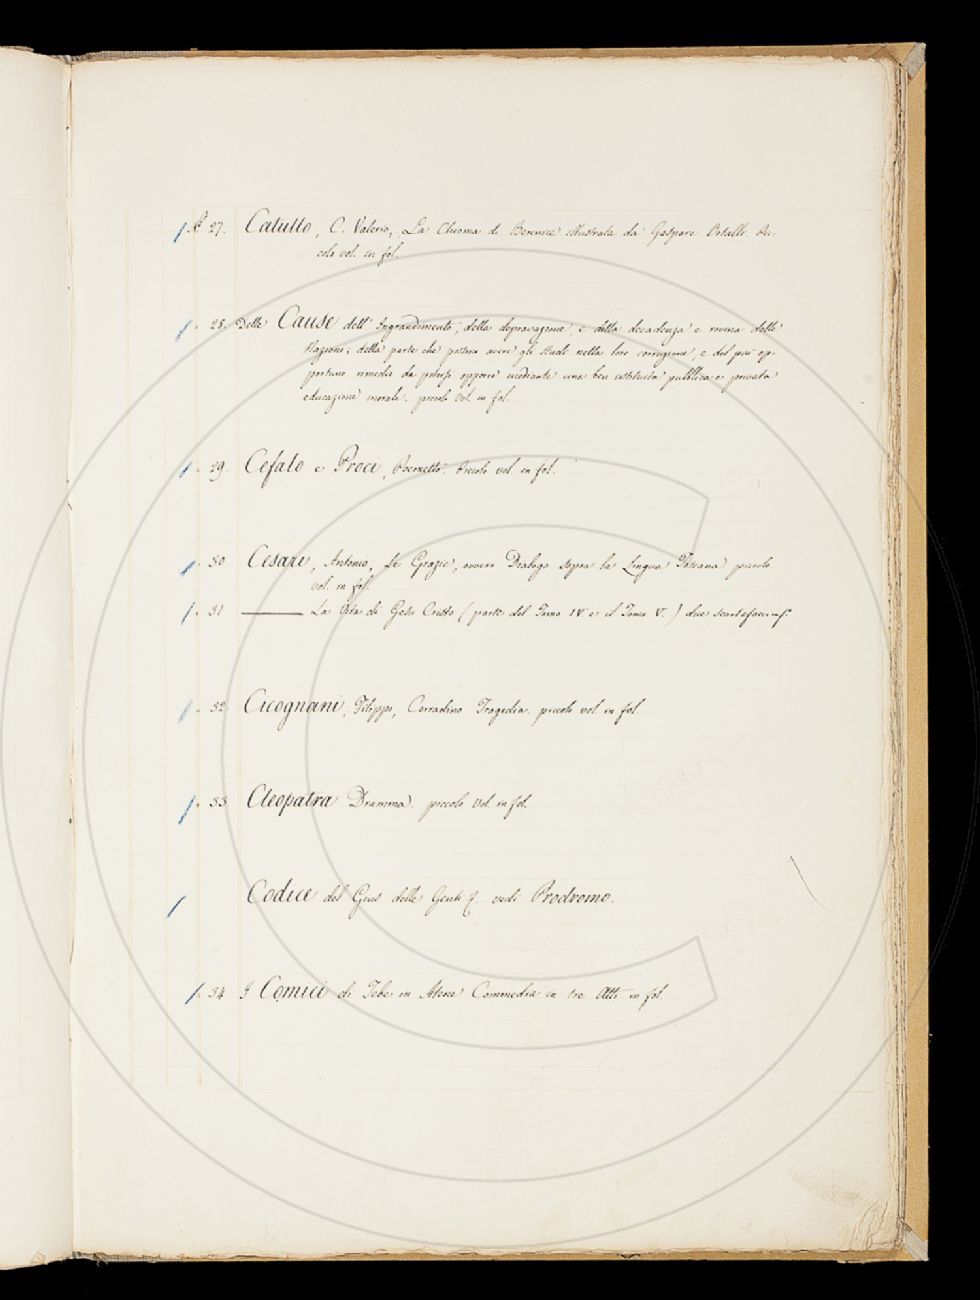 N.º 27. Catullo, C. Valerio, La Chioma di Berenice illustrata da Gaspare Pic-
colo vol. in fol.
" 28 Delle Cause dell' Ingrandimento, della depravazione, e della decadenza e rovina delle
Nazioni; della parte che possono avere gli Studi nella loro corruzione, e del più op-
portuno rimedio da potersi opporre mediante una ben istituita pubblica e privata
educazione morale. piccolo vol. in fol.
" 29 Cefalo e Proci, Poemetto. Piccolo vol. in fol.
" 30 Cesari, Antonio, Le Grazie, ovvero Dialogo sopra la Lingua Toscana piccolo
vol. in fol.
" 31 ——— La Vita di Gesù Cristo (parte del Tomo IV. e il Tomo V.) due scartafacci in f.
" 32 Cicognani, Filippo, Corradino Tragedia. piccolo vol. in fol.
" 33 Cleopatra Dramma. piccolo vol. in fol.
Codice del Gius delle Genti vedi Prodromo.
" 34 I Comici di Tebe in Atene Commedia in tre Atti in fol.